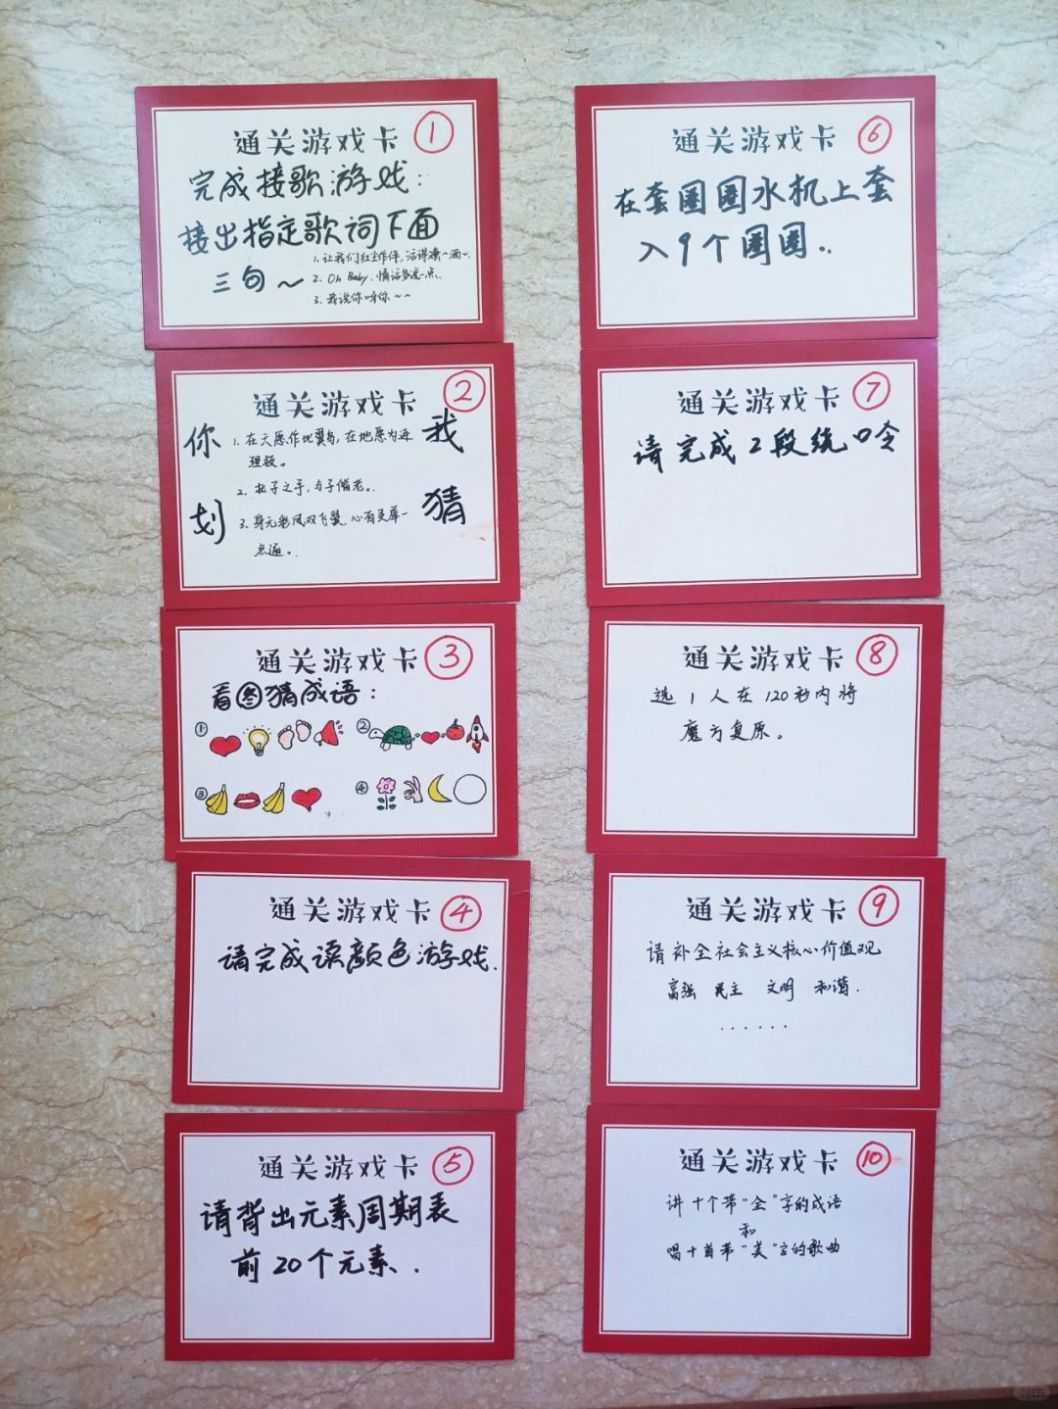 通关游戏卡 ①
完成接歌游戏：
接出指定歌词下面
三句～
1. 让我们红尘作伴，活得潇洒～
2. Oh Baby，情话多说一点
3. 我说你呀你～～
通关游戏卡 ②
你 我
划 猜
1. 在天愿作比翼鸟，在地愿为连
理枝。
2. 执子之手，与子偕老。
3. 身无彩凤双飞翼，心有灵犀一
点通。
通关游戏卡 ③
看图猜成语：
① ②
③ ④
通关游戏卡 ④
请完成读颜色游戏.
通关游戏卡 ⑤
请背出元素周期表
前20个元素.
通关游戏卡 ⑥
在套圈圈水机上套
入9个圈圈..
通关游戏卡 ⑦
请完成2段绕口令
通关游戏卡 ⑧
选1人在120秒内将
魔方复原。
通关游戏卡 ⑨
请补全社会主义核心价值观
富强 民主 文明 和谐.
······
通关游戏卡 ⑩
讲十个带"全"字的成语
和
唱十首带"美"字的歌曲